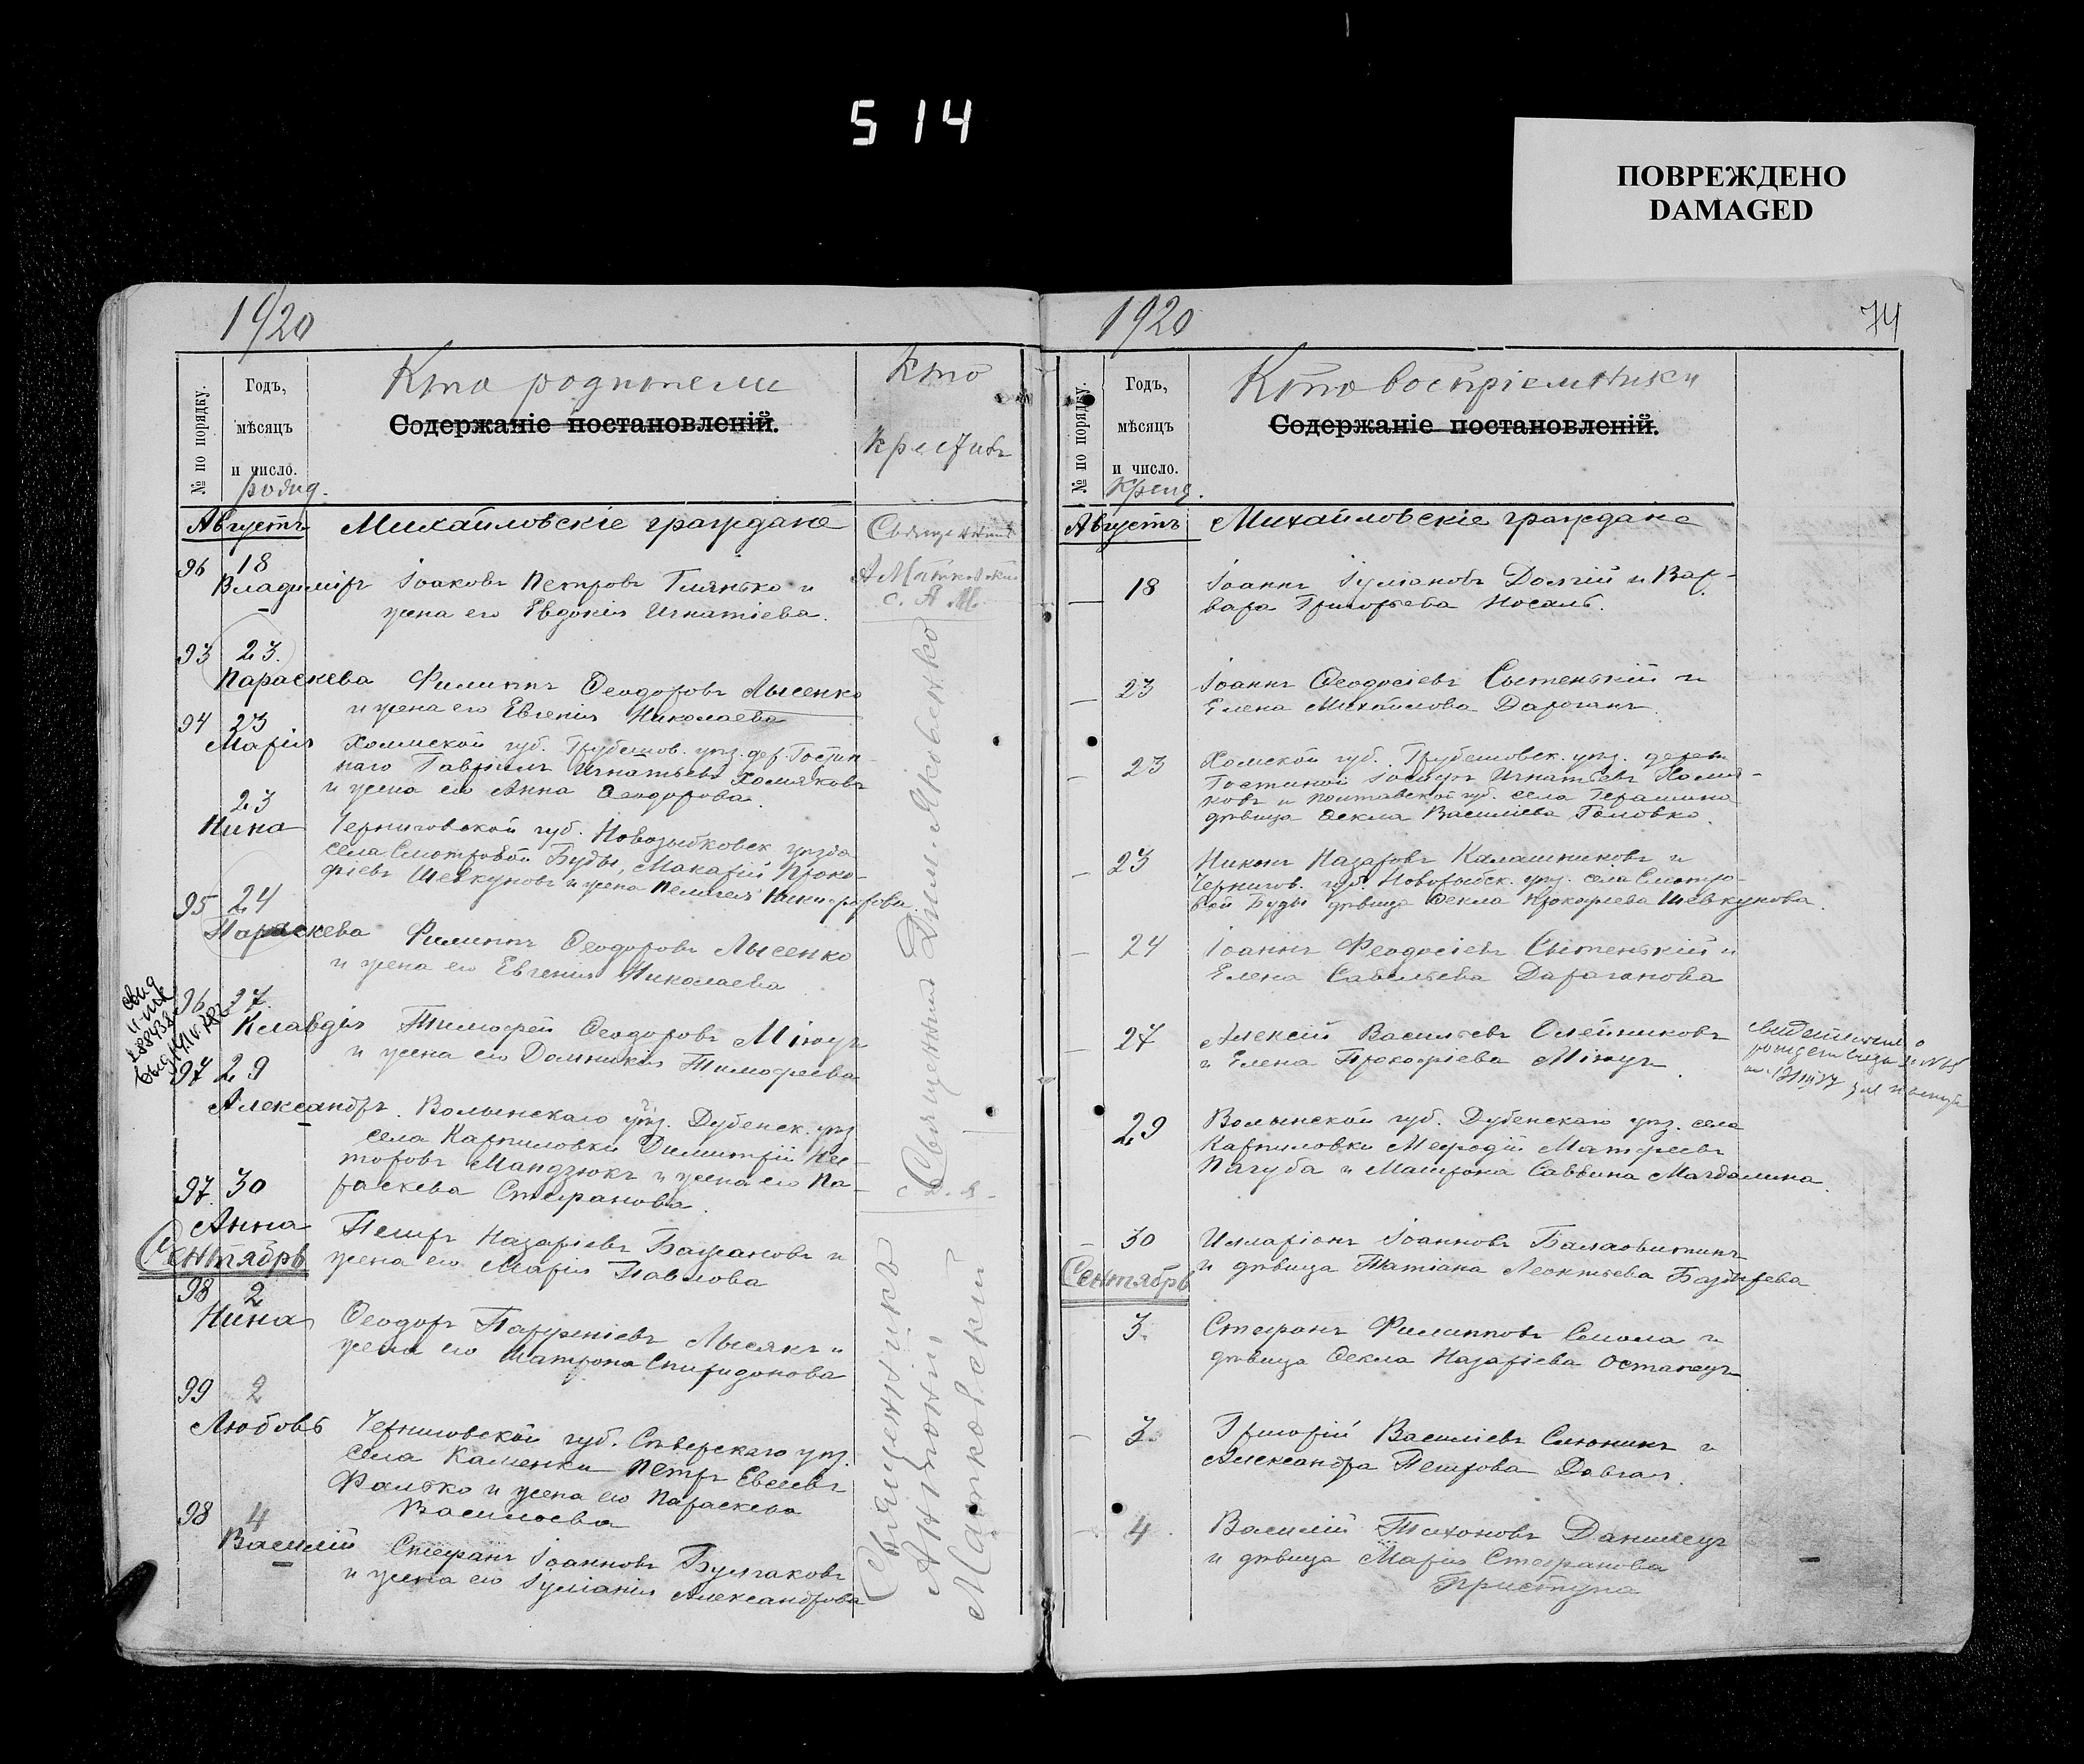 514
ПОВРЕЖДЕНО
DAMAGED
1920
№ по порядку.
Годъ,
мѣсяцъ
и число.
родид.
Кто родители
Содержаніе постановленій.
Кто
крестивъ
Августъ
Михайловскіе граждане
96 18
Владиміръ Іоаковъ Петровъ Глянько и
жена его Евдокія Игнатіева.
93 23.
Параскева Филиппъ Ѳеодоровъ Лысенко
и жена его Евгенія Николаева
94 23
Марія Холмской губ. Грубешов. уѣз. дер. Гостин-
наго Гавріилъ Игнатьевъ Хомяковъ
и жена его Анна Ѳеодорова.
23
Нина Черниговской губ. Новозыбковск уѣзда
села Смотровой Буды, Макарій Проко-
фіевъ Шевкуновъ и жена Пелагея Никифорова.
95 24
Параскева Филиппъ Ѳеодоровъ Лысенко
и жена его Евгенія Николаева
96 27
Клавдія Тимофей Ѳеодоровъ Міюцъ
и жена его Домникія Тимофеева
97 29
Александръ. Волынскаго Дубенск. уѣз
села Карпиловки Димитрій Нес-
торовъ Мандзюкъ и жена его Па-
раскева Стефанова.
97. 30
Анна Петръ Назаріевъ Бажановъ и
жена его Марія Павлова
Сентябрь
98 2
Нина Ѳеодоръ Парфеніевъ Лысякъ и
жена его Матрона Спиридонова
99 2
Любовь Черниговской губ. Сѣверскаго уѣз.
села Каменки Петръ Евсеевъ
Фалько и жена его Параскева
Васильева
98 4
Василій Стефанъ Іоанновъ Булгаковъ
и жена его Іуліанія Александрова
Священникъ
А Матковскій
с. А М.
Священникъ Дим. Яковенко
Священникъ
Антоній
Матковскій
1920
74
№ по порядку.
Годъ,
мѣсяцъ
и число.
Крещ.
Кто воспріемники
Содержаніе постановленій.
Августъ
Михайловскіе граждане
18 Іоаннъ Іуліановъ Долгій и Вар-
вара Григорьева Носаль.
23 Іоаннъ Ѳеодосіевъ Сытенькій и
Елена Михайлова Дароганъ.
23 Холмской губ. Грубешовск. уѣз. дерев
Гостиной Игнатьевъ Хомя-
ковъ и Полтавской губ. села
дѣвица Ѳекла Василіева Головко.
23 Никонъ Назаровъ Калашниковъ и
Чернигов. губ. Новозыбск. уѣз. села Смотро-
вой Буды дѣвица Ѳекла Прокофіева Шевкунова.
24 Іоаннъ Феодосіевъ Сытенькій и
Елена Савельева Дараганова
27 Алексій Васильевъ Олейниковъ
и Елена Прокофіева Міюцъ.
29 Волынской губ. Дубенскаго уѣз. села
Карпиловки Мефодій Матфеевъ
Пагуба и Матрона Саввина Магдалина.
30 Илларіонъ Іоанновъ Балаовитинъ
и дѣвица Татіана Леонтьева
Сентябрь
3. Стефанъ Филипповъ Смола и
дѣвица Ѳекла Назаріева Остапецъ
3. Григорій Василіевъ Слюнинъ и
Александра Петрова Довгал.
4. Василій Тихоновъ Данилецъ
и дѣвица Марія Стефанова
Приступа